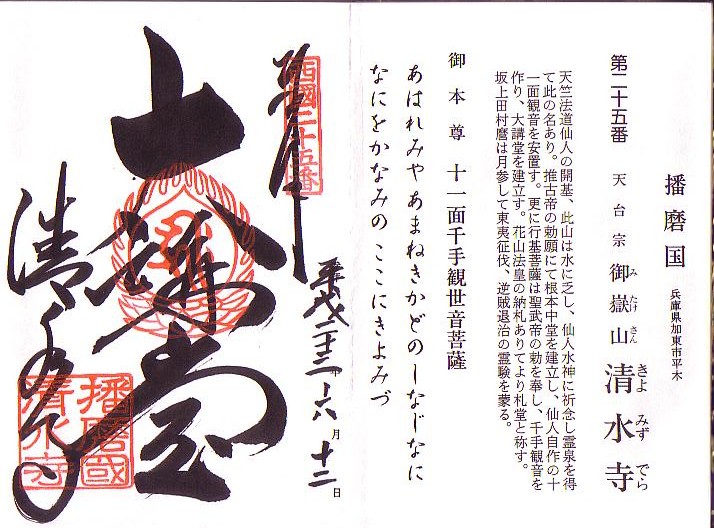 播磨国 兵庫県加東市平木
第二十五番 天台宗 御嶽山 清水寺
みたけさん きよみずでら
天竺法道仙人の開基、此山は水に乏し、仙人水神に祈念し霊泉を得
て此の名あり。推古帝の勅願にて根本中堂を建立し、仙人自作の十
一面観音を安置す。更に行基菩薩は聖武帝の勅を奉し、千手観音を
作り、大講堂を建立す。花山法皇の納札ありてより札堂と称す。
坂上田村麿は月参して東夷征伐、逆賊退治の霊験を蒙る。
御本尊 十一面千手観世音菩薩
あはれみやあまねきかどのしなじなに
なにをかなみの ここにきよみづ
奉拝
西國二十五番
平成二十三年六月十二日
大講堂
清水寺
播磨國
清水寺